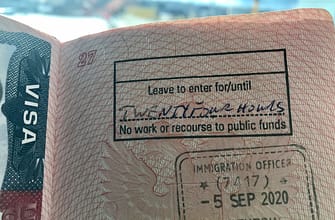 27
VISA
Leave to enter for/until
TWENTY FOUR HOURS
No work or recourse to public funds
IMMIGRATION OFFICER
★ (7417) ★
- 5 SEP 2020